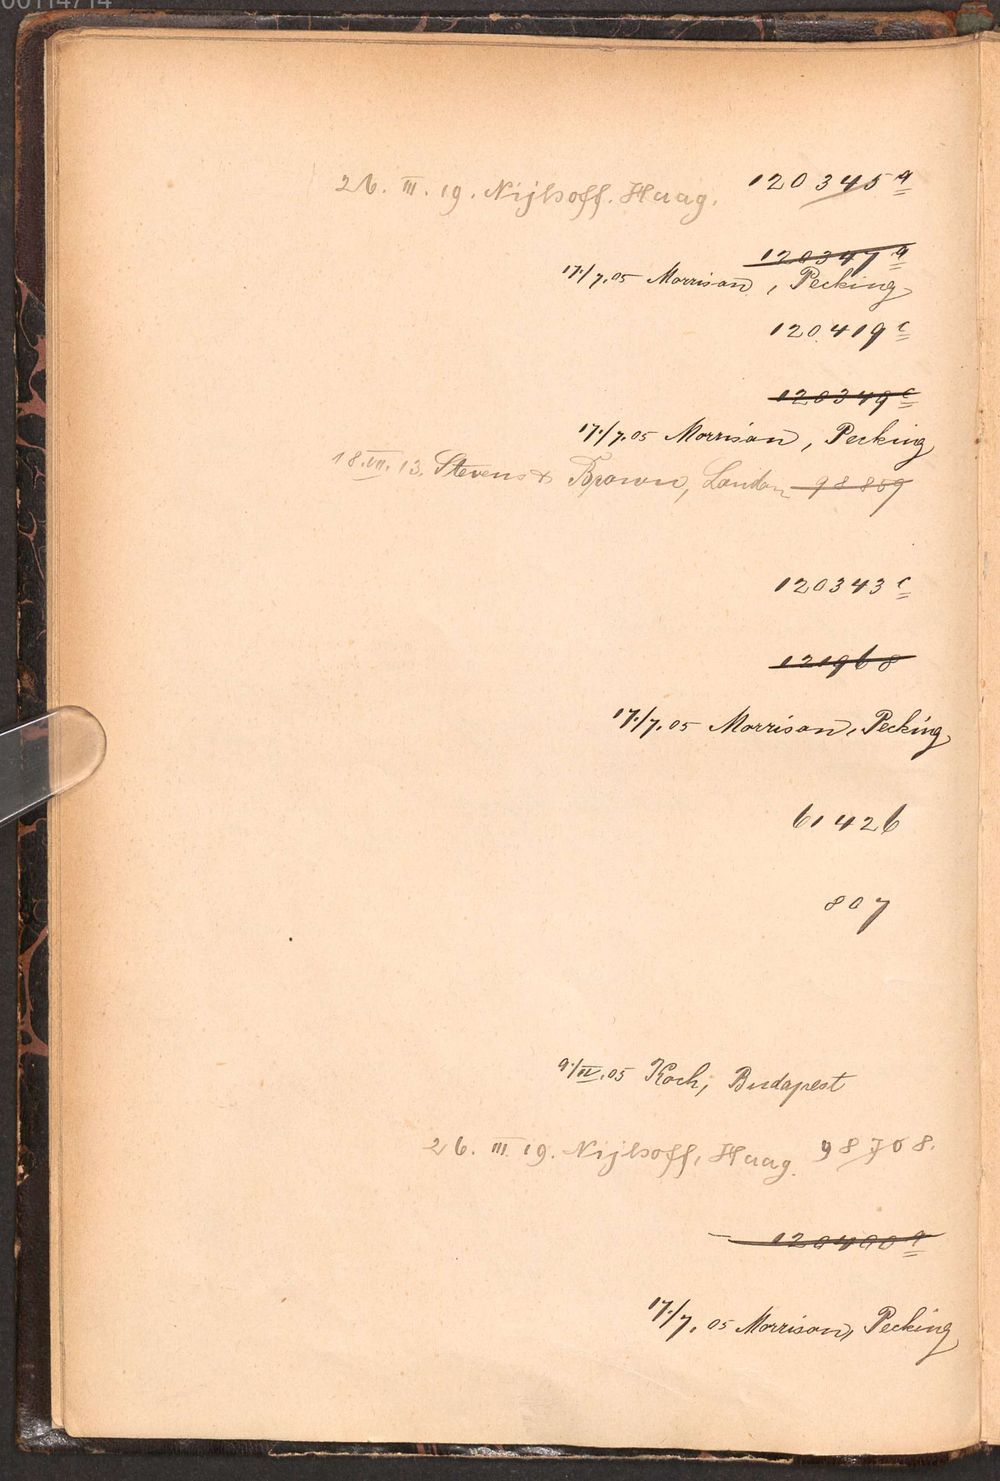 26. III. 19. Nijhoff. Haag. 120345 a
120347 a
17./7.05 Morrison, Pecking
120.419 c
120349 c
17./7.05 Morrison, Pecking
18.VII.13. Stevens & Brown, London 98869
120343 c
121968
17./7.05 Morrison, Pecking
61426
807
9./IV.05 Koch, Budapest
26. III. 19. Nijhoff, Haag. 98708.
120400 a
17./7.05 Morrison, Pecking